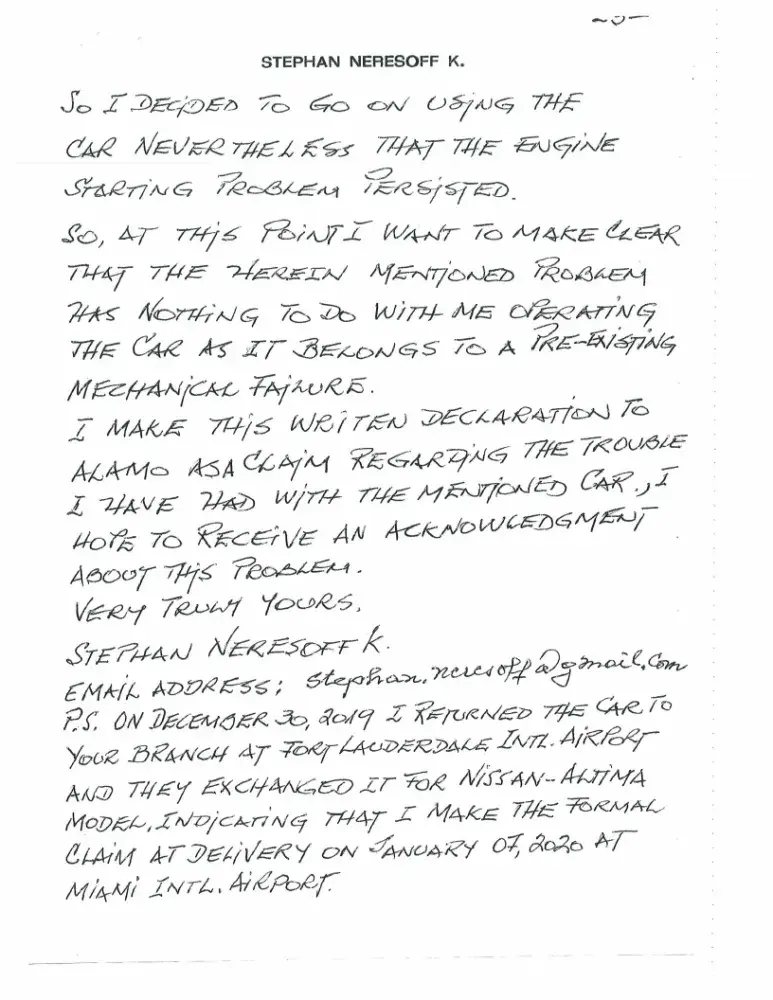 -3-
STEPHAN NERESOFF K.
So I DECIDED TO GO ON USING THE
CAR NEVERTHELESS THAT THE ENGINE
STARTING PROBLEM PERSISTED.
SO, AT THIS POINT I WANT TO MAKE CLEAR
THAT THE HEREIN MENTIONED PROBLEM
HAS NOTHING TO DO WITH ME OPERATING
THE CAR AS IT BELONGS TO A PRE-EXISTING
MECHANICAL FAILURE.
I MAKE THIS WRITEN DECLARATION TO
ALAMO AS A CLAIM REGARDING THE TROUBLE
I HAVE HAD WITH THE MENTIONED CAR., I
HOPE TO RECEIVE AN ACKNOWLEDGMENT
ABOUT THIS PROBLEM.
VERY TRULY YOURS,
STEPHAN NERESOFF K.
EMAIL ADDRESS; stephan.neresoff@gmail.com
P.S. ON DECEMBER 30, 2019 I RETURNED THE CAR TO
YOUR BRANCH AT FORT LAUDERDALE INTL. AIRPORT
AND THEY EXCHANGED IT FOR NISSAN-ALTIMA
MODEL, INDICATING THAT I MAKE THE FORMAL
CLAIM AT DELIVERY ON JANUARY 07, 2020 AT
MIAMI INTL. AIRPORT.